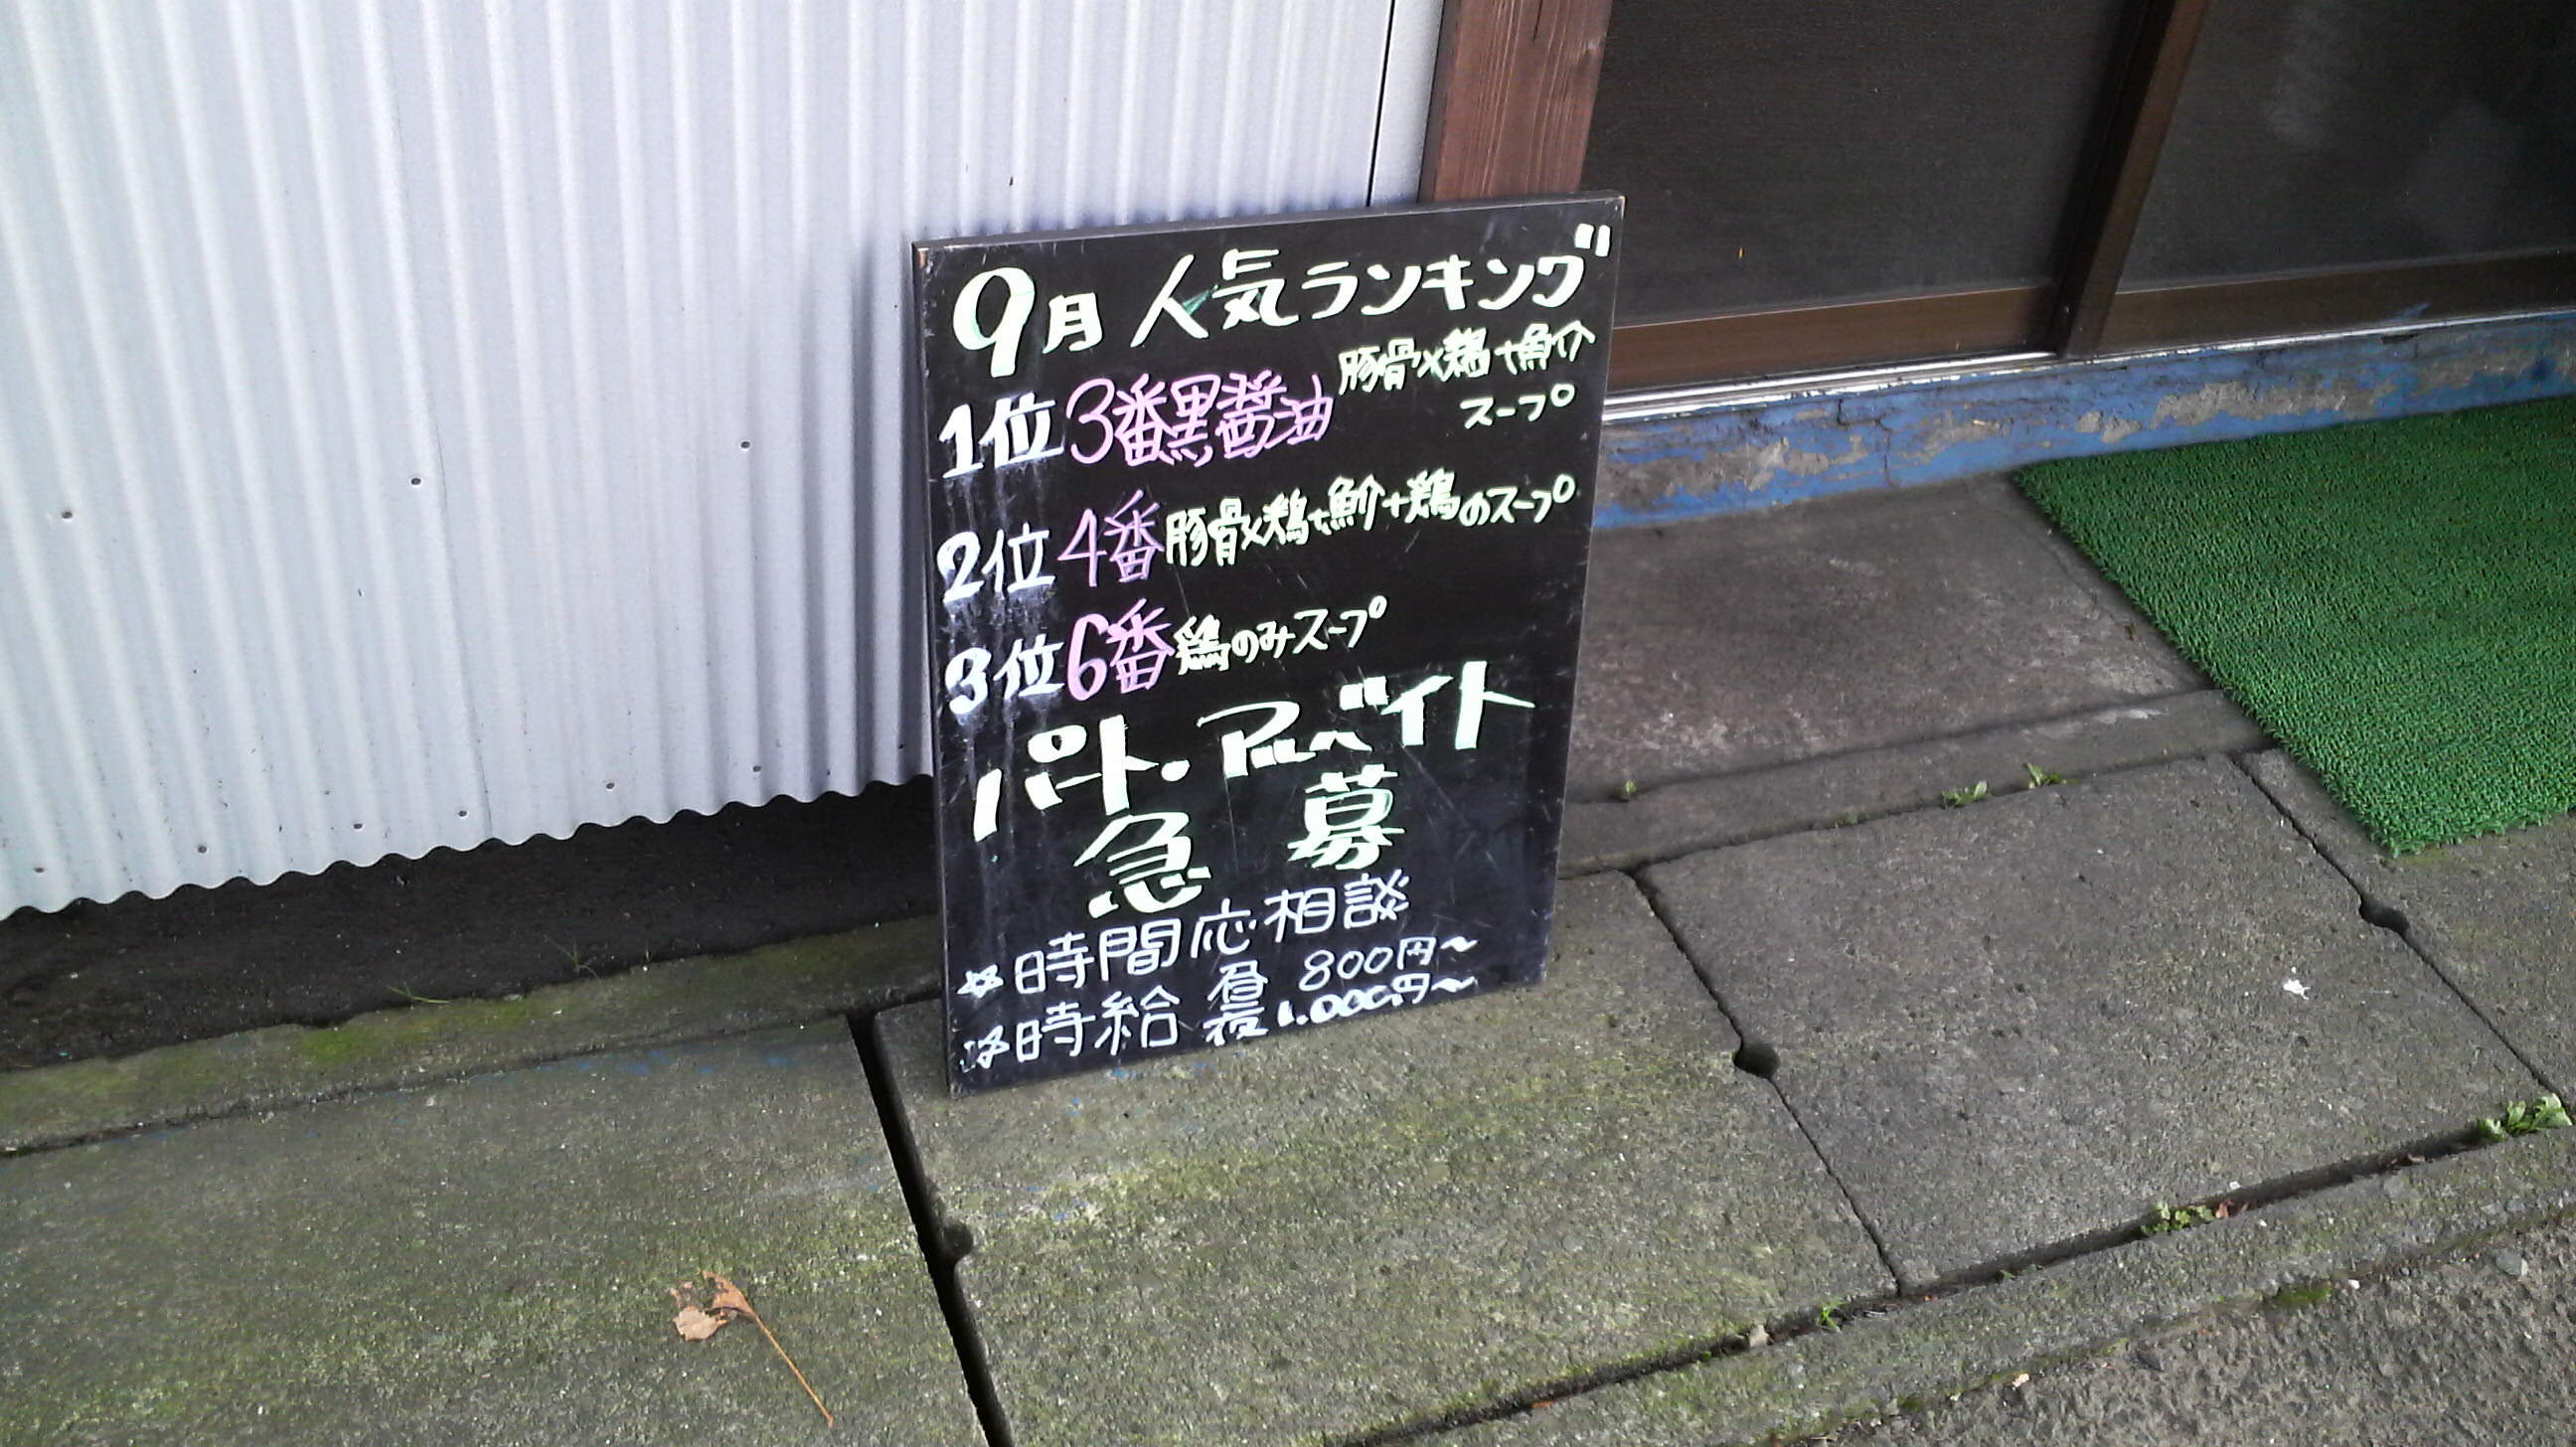 9月 人気ランキング
1位 3番黒醤油 豚骨×鶏+魚介
スープ
2位 4番 豚骨×鶏+魚介+鶏のスープ
3位 6番 鶏のみスープ
パート.アルバイト
急 募
☆時間応相談
☆時給 昼 800円〜
夜 1.000円〜